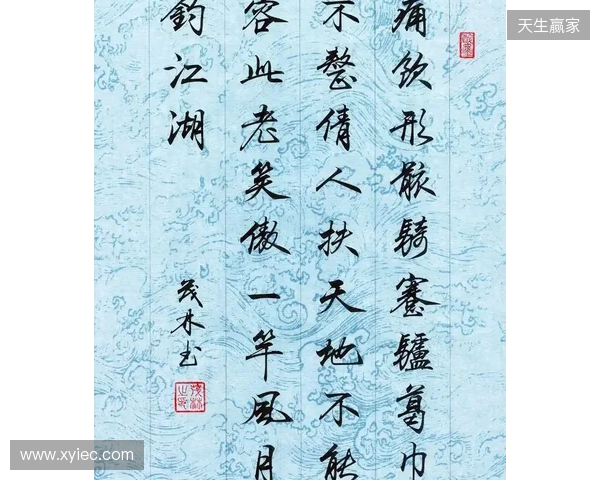 天生赢家
痛飲形骸騎蹇驢葛巾
不整倩人扶天地不能
容此老笑傲一竿風月
釣江湖
茂林书
www.xyiec.com